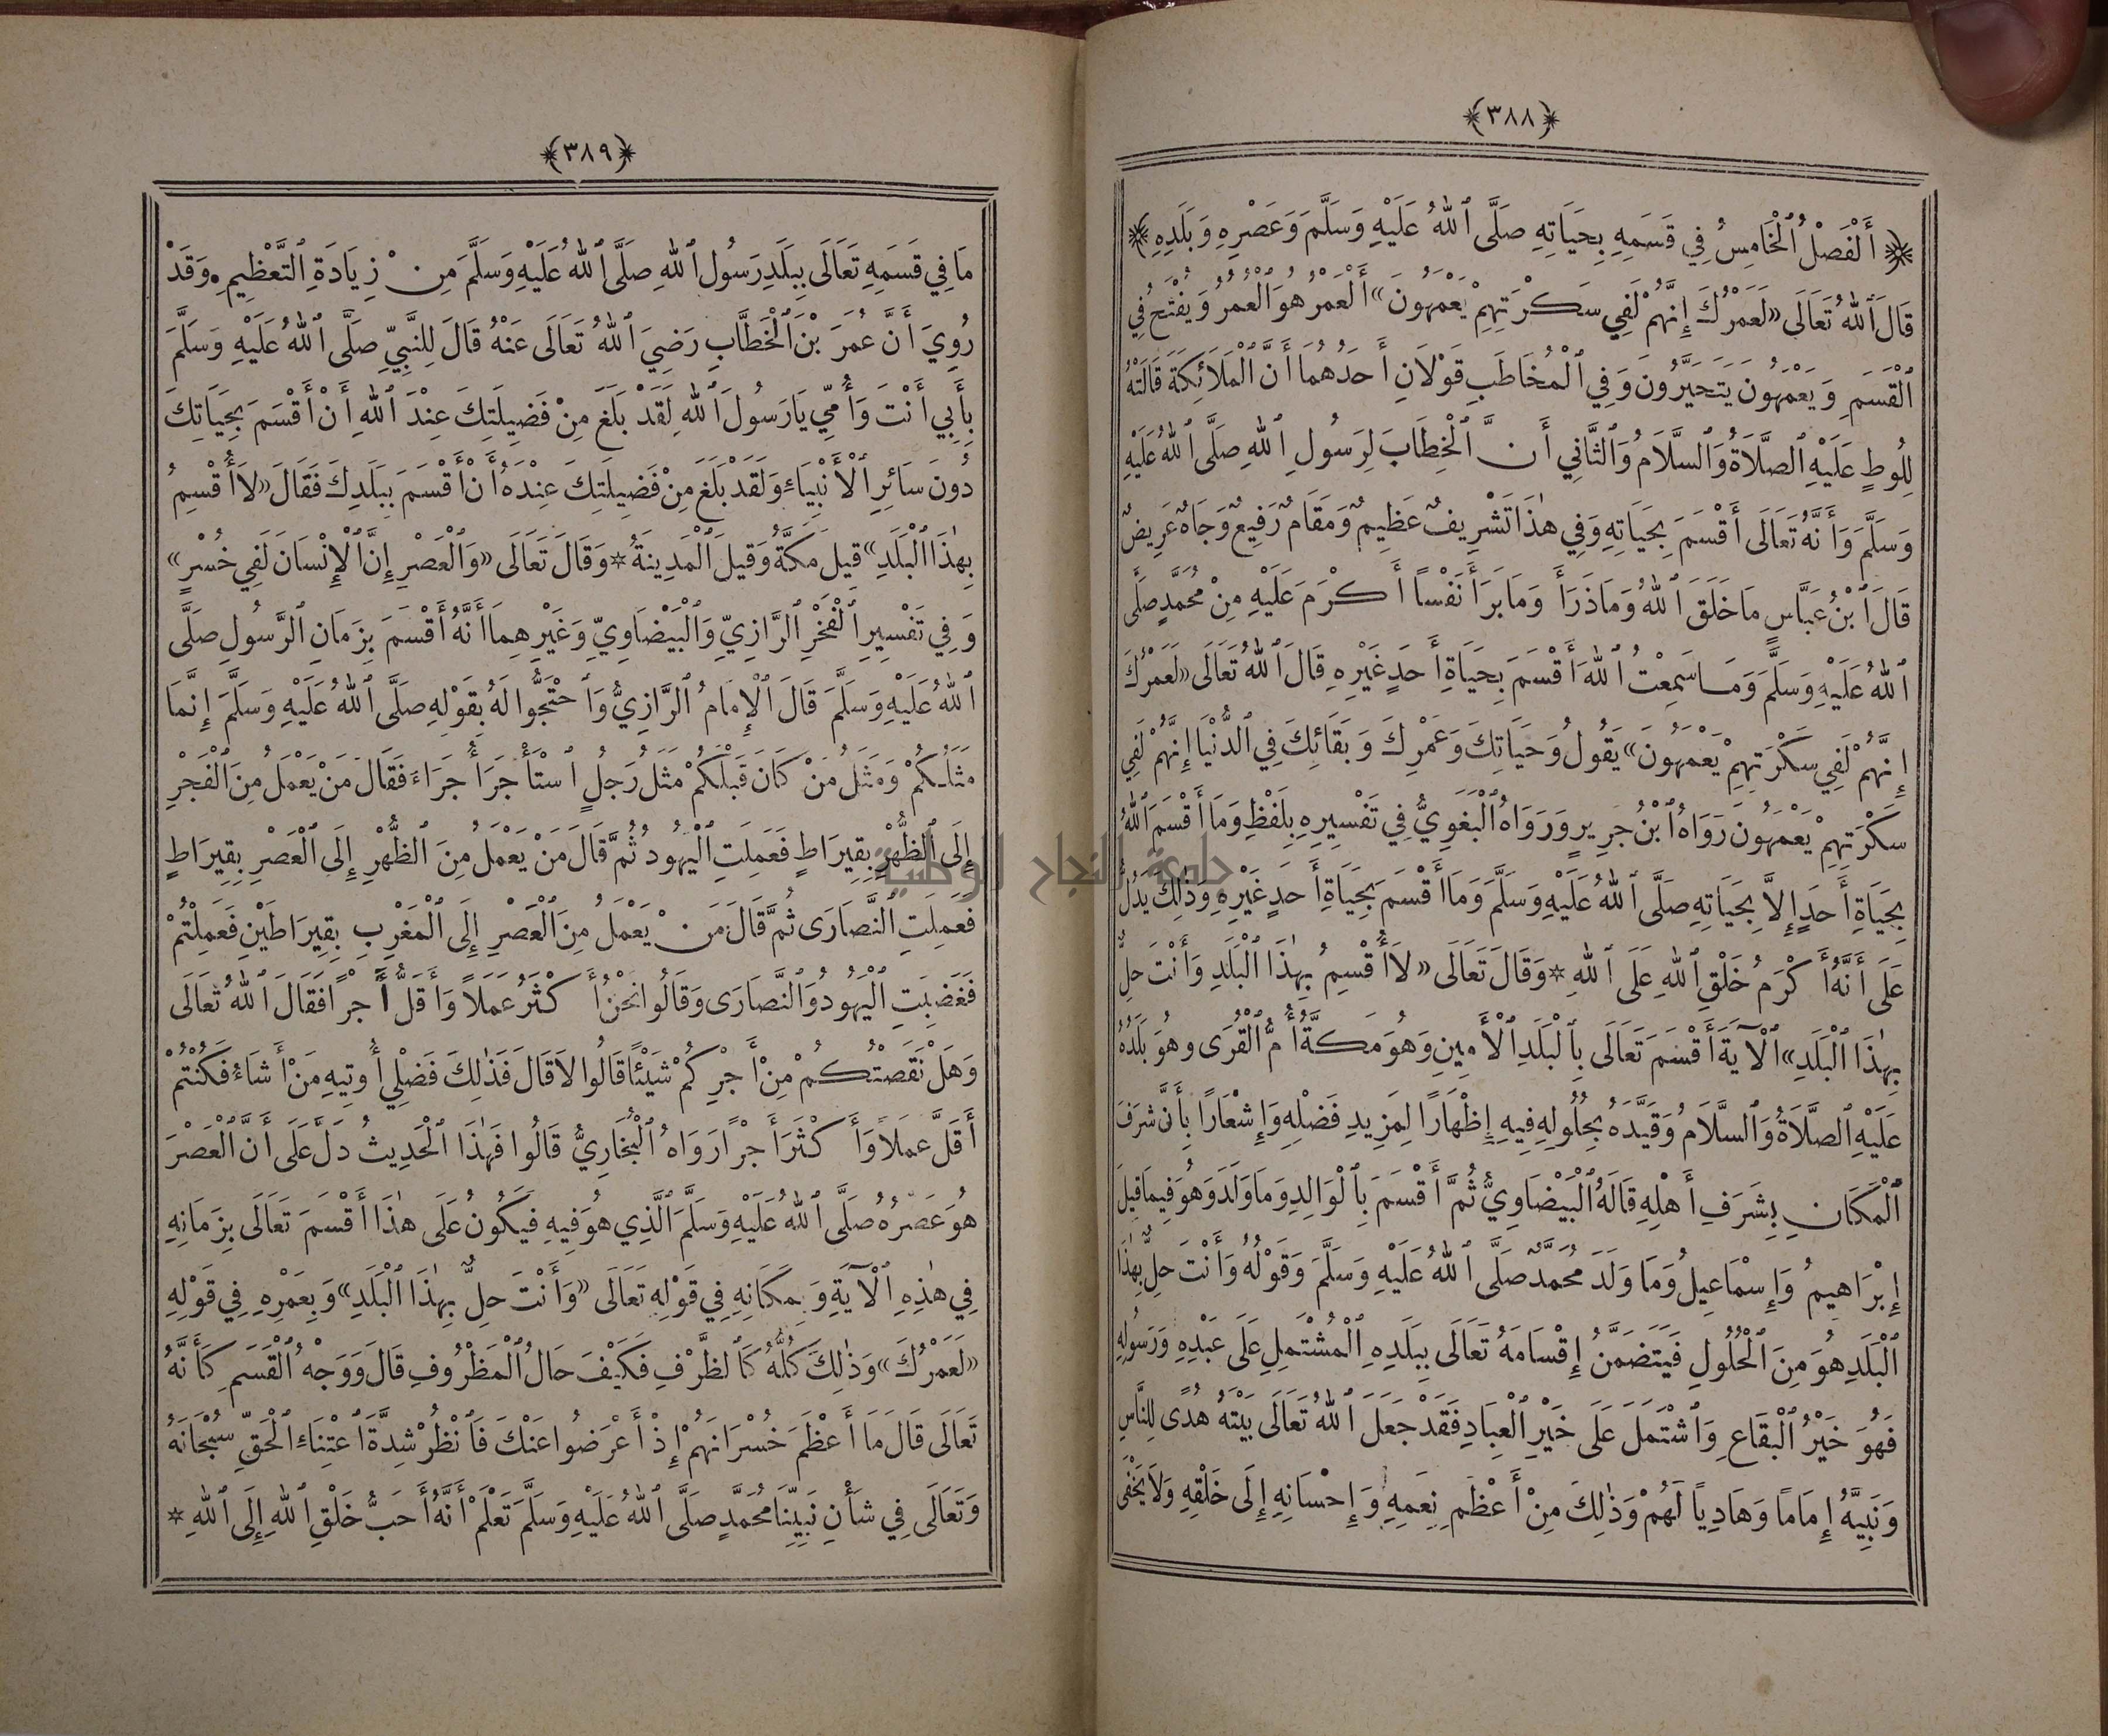 ﴿٣٨٨﴾
﴿ أَلْفَصْلُ ٱلْخَامِسُ فِي قَسَمِهِ بِحَيَاتِهِ صَلَّى ٱللهُ عَلَيْهِ وَسَلَّمَ وَعَصْرِهِ وَبَلَدِهِ ﴾
قَالَ ٱللهُ تَعَالَى «لَعَمْرُكَ إِنَّهُمْ لَفِي سَكْرَتِهِمْ يَعْمَهُونَ» أَلْعَمْرُ هُوَ ٱلْعُمُرُ وَيُفْتَحُ فِي
ٱلْقَسَمِ وَيَعْمَهُونَ يَتَحَيَّرُونَ وَفِي ٱلْمُخَاطَبِ قَوْلَانِ أَحَدُهُمَا أَنَّ ٱلْمَلَائِكَةَ قَالَتْهُ
لِلُوطٍ عَلَيْهِ ٱلصَّلَاةُ وَٱلسَّلَامُ وَٱلثَّانِي أَنَّ ٱلْخِطَابَ لِرَسُولِ ٱللهِ صَلَّى ٱللهُ عَلَيْهِ
وَسَلَّمَ وَأَنَّهُ تَعَالَى أَقْسَمَ بِحَيَاتِهِ وَفِي هٰذَا تَشْرِيفٌ عَظِيمٌ وَمَقَامٌ رَفِيعٌ وَجَاهٌ عَرِيضٌ
قَالَ ٱبْنُ عَبَّاسٍ مَا خَلَقَ ٱللهُ وَمَا ذَرَأَ وَمَا بَرَأَ نَفْسًا أَكْرَمَ عَلَيْهِ مِنْ مُحَمَّدٍ صَلَّى
ٱللهُ عَلَيْهِ وَسَلَّمَ وَمَا سَمِعْتُ ٱللهَ أَقْسَمَ بِحَيَاةِ أَحَدٍ غَيْرِهِ قَالَ ٱللهُ تَعَالَى «لَعَمْرُكَ
إِنَّهُمْ لَفِي سَكْرَتِهِمْ يَعْمَهُونَ» يَقُولُ وَحَيَاتِكَ وَعَمْرِكَ وَبَقَائِكَ فِي ٱلدُّنْيَا إِنَّهُمْ لَفِي
سَكْرَتِهِمْ يَعْمَهُونَ رَوَاهُ ٱبْنُ جَرِيرٍ وَرَوَاهُ ٱلْبَغَوِيُّ فِي تَفْسِيرِهِ بِلَفْظِ وَمَا أَقْسَمَ ٱللهُ
بِحَيَاةِ أَحَدٍ إِلَّا بِحَيَاتِهِ صَلَّى ٱللهُ عَلَيْهِ وَسَلَّمَ وَمَا أَقْسَمَ بِحَيَاةِ أَحَدٍ غَيْرِهِ وَذٰلِكَ يَدُلُّ
عَلَى أَنَّهُ أَكْرَمُ خَلْقِ ٱللهِ عَلَى ٱللهِ * وَقَالَ تَعَالَى «لَا أُقْسِمُ بِهٰذَا ٱلْبَلَدِ وَأَنْتَ حِلٌّ
بِهٰذَا ٱلْبَلَدِ» ٱلْآيَةَ أَقْسَمَ تَعَالَى بِٱلْبَلَدِ ٱلْأَمِينِ وَهُوَ مَكَّةُ أُمُّ ٱلْقُرَى وهُوَ بَلَدُهُ
عَلَيْهِ ٱلصَّلَاةُ وَٱلسَّلَامُ وَقَيَّدَهُ بِحُلُولِهِ فِيهِ إِظْهَارًا لِمَزِيدِ فَضْلِهِ وَإِشْعَارًا بِأَنَّ شَرَفَ
ٱلْمَكَانِ بِشَرَفِ أَهْلِهِ قَالَهُ ٱلْبَيْضَاوِيُّ ثُمَّ أَقْسَمَ بِٱلْوَالِدِ وَمَا وَلَدَ وَهُوَ فِيمَا قِيلَ
إِبْرَاهِيمُ وَإِسْمَاعِيلُ وَمَا وَلَدَ مُحَمَّدٌ صَلَّى ٱللهُ عَلَيْهِ وَسَلَّمَ وَقَوْلُهُ وَأَنْتَ حِلٌّ بِهٰذَا
ٱلْبَلَدِ هُوَ مِنَ ٱلْحُلُولِ فَيَتَضَمَّنُ إِقْسَامَهُ تَعَالَى بِبَلَدِهِ ٱلْمُشْتَمِلِ عَلَى عَبْدِهِ وَرَسُولِهِ
فَهُوَ خَيْرُ ٱلْبِقَاعِ وَٱشْتَمَلَ عَلَى خَيْرِ ٱلْعِبَادِ فَقَدْ جَعَلَ ٱللهُ تَعَالَى بَيْتَهُ هُدًى لِلنَّاسِ
وَنَبِيَّهُ إِمَامًا وَهَادِيًا لَهُمْ وَذٰلِكَ مِنْ أَعْظَمِ نِعَمِهِ وَإِحْسَانِهِ إِلَى خَلْقِهِ وَلَا يَخْفَى
﴿٣٨٩﴾
مَا فِي قَسَمِهِ تَعَالَى بِبَلَدِ رَسُولِ ٱللهِ صَلَّى ٱللهُ عَلَيْهِ وَسَلَّمَ مِنْ زِيَادَةِ ٱلتَّعْظِيمِ. وَقَدْ
رُوِيَ أَنَّ عُمَرَ بْنَ ٱلْخَطَّابِ رَضِيَ ٱللهُ تَعَالَى عَنْهُ قَالَ لِلنَّبِيِّ صَلَّى ٱللهُ عَلَيْهِ وَسَلَّمَ
بِأَبِي أَنْتَ وَأُمِّي يَا رَسُولَ ٱللهِ لَقَدْ بَلَغَ مِنْ فَضِيلَتِكَ عِنْدَ ٱللهِ أَنْ أَقْسَمَ بِحَيَاتِكَ
دُونَ سَائِرِ ٱلْأَنْبِيَاءِ وَلَقَدْ بَلَغَ مِنْ فَضِيلَتِكَ عِنْدَهُ أَنْ أَقْسَمَ بِبَلَدِكَ فَقَالَ «لَا أُقْسِمُ
بِهٰذَا ٱلْبَلَدِ» قِيلَ مَكَّةُ وَقِيلَ ٱلْمَدِينَةُ * وَقَالَ تَعَالَى «وَٱلْعَصْرِ إِنَّ ٱلْإِنْسَانَ لَفِي خُسْرٍ»
وَفِي تَفْسِيرِ ٱلْفَخْرِ ٱلرَّازِيِّ وَٱلْبَيْضَاوِيِّ وَغَيْرِهِمَا أَنَّهُ أَقْسَمَ بِزَمَانِ ٱلرَّسُولِ صَلَّى
ٱللهُ عَلَيْهِ وَسَلَّمَ قَالَ ٱلْإِمَامُ ٱلرَّازِيُّ وَٱحْتَجُّوا لَهُ بِقَوْلِهِ صَلَّى ٱللهُ عَلَيْهِ وَسَلَّمَ إِنَّمَا
مَثَلُكُمْ وَمَثَلُ مَنْ كَانَ قَبْلَكُمْ مَثَلُ رَجُلٍ ٱسْتَأْجَرَ أُجَرَاءَ فَقَالَ مَنْ يَعْمَلُ مِنَ ٱلْفَجْرِ
إِلَى ٱلظُّهْرِ بِقِيرَاطٍ فَعَمِلَتِ ٱلْيَهُودُ ثُمَّ قَالَ مَنْ يَعْمَلُ مِنَ ٱلظُّهْرِ إِلَى ٱلْعَصْرِ بِقِيرَاطٍ
فَعَمِلَتِ ٱلنَّصَارَى ثُمَّ قَالَ مَنْ يَعْمَلُ مِنَ ٱلْعَصْرِ إِلَى ٱلْمَغْرِبِ بِقِيرَاطَيْنِ فَعَمِلْتُمْ
فَغَضِبَتِ ٱلْيَهُودُ وَٱلنَّصَارَى وَقَالُوا نَحْنُ أَكْثَرُ عَمَلًا وَأَقَلُّ أَجْرًا فَقَالَ ٱللهُ تَعَالَى
وَهَلْ نَقَصْتُكُمْ مِنْ أَجْرِكُمْ شَيْئًا قَالُوا لَا قَالَ فَذٰلِكَ فَضْلِي أُوتِيهِ مَنْ أَشَاءُ فَكُنْتُمْ
أَقَلَّ عَمَلًا وَأَكْثَرَ أَجْرًا رَوَاهُ ٱلْبُخَارِيُّ قَالُوا فَهٰذَا ٱلْحَدِيثُ دَلَّ عَلَى أَنَّ ٱلْعَصْرَ
هُوَ عَصْرُهُ صَلَّى ٱللهُ عَلَيْهِ وَسَلَّمَ ٱلَّذِي هُوَ فِيهِ فَيَكُونُ عَلَى هٰذَا أَقْسَمَ تَعَالَى بِزَمَانِهِ
فِي هٰذِهِ ٱلْآيَةِ وَبِمَكَانِهِ فِي قَوْلِهِ تَعَالَى «وَأَنْتَ حِلٌّ بِهٰذَا ٱلْبَلَدِ» وَبِعَمْرِهِ فِي قَوْلِهِ
«لَعَمْرُكَ» وَذٰلِكَ كُلُّهُ كَٱلظَّرْفِ فَكَيْفَ حَالُ ٱلْمَظْرُوفِ قَالَ وَوَجْهُ ٱلْقَسَمِ كَأَنَّهُ
تَعَالَى قَالَ مَا أَعْظَمَ خُسْرَانَهُمْ إِذْ أَعْرَضُوا عَنْكَ فَٱنْظُرْ شِدَّةَ ٱعْتِنَاءِ ٱلْحَقِّ سُبْحَانَهُ
وَتَعَالَى فِي شَأْنِ نَبِيِّنَا مُحَمَّدٍ صَلَّى ٱللهُ عَلَيْهِ وَسَلَّمَ تَعْلَمْ أَنَّهُ أَحَبُّ خَلْقِ ٱللهِ إِلَى ٱللهِ *
جامعة النجاح الوطنية